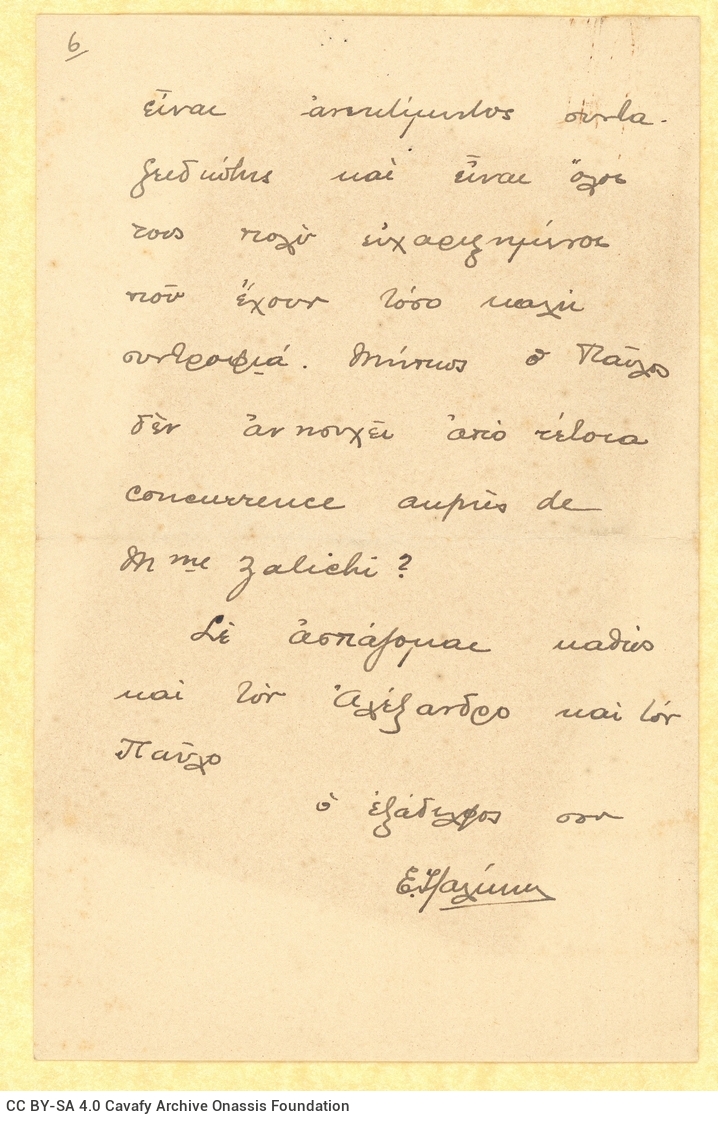 6
εἶναι ἀνεκτίμητος συντα-
ξειδιώτης καὶ εἶναι ὅλοι
τους πολὺ εὐχαριστημένοι
ποῦ ἔχουν τόσο καλὴ
συντροφιά. Μήπως ὁ Παῦλος
δὲν ἀνησυχεῖ ἀπὸ τέτοια
concurrence auprès de
Mme Zalichi?
Σὲ ἀσπάζομαι καθὼς
καὶ τὸν Ἀλέξανδρο καὶ τὸν
Παῦλο
ὁ ἐξάδελφος σου
CC BY-SA 4.0 Cavafy Archive Onassis Foundation